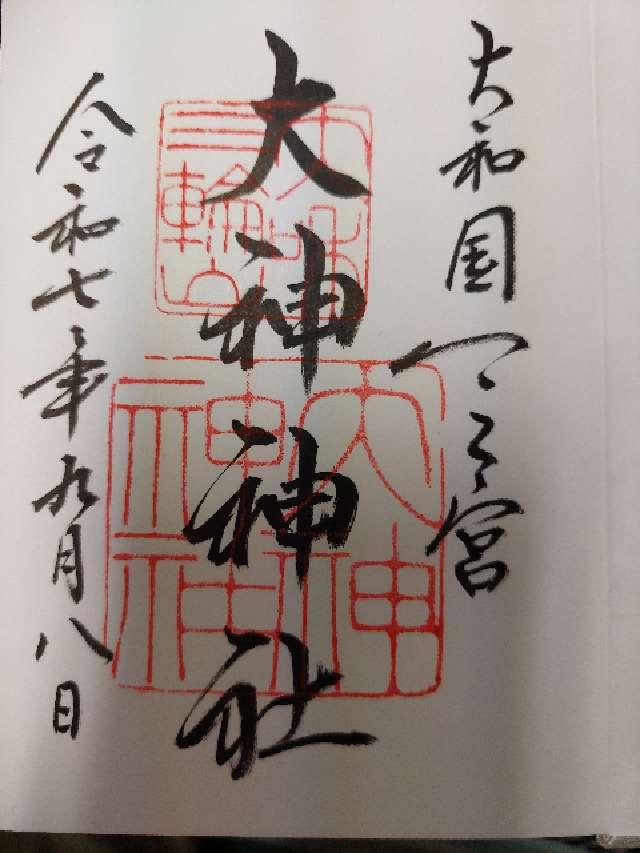 大和国一之宮
大神神社
令和七年九月八日
三輪山
大神神社